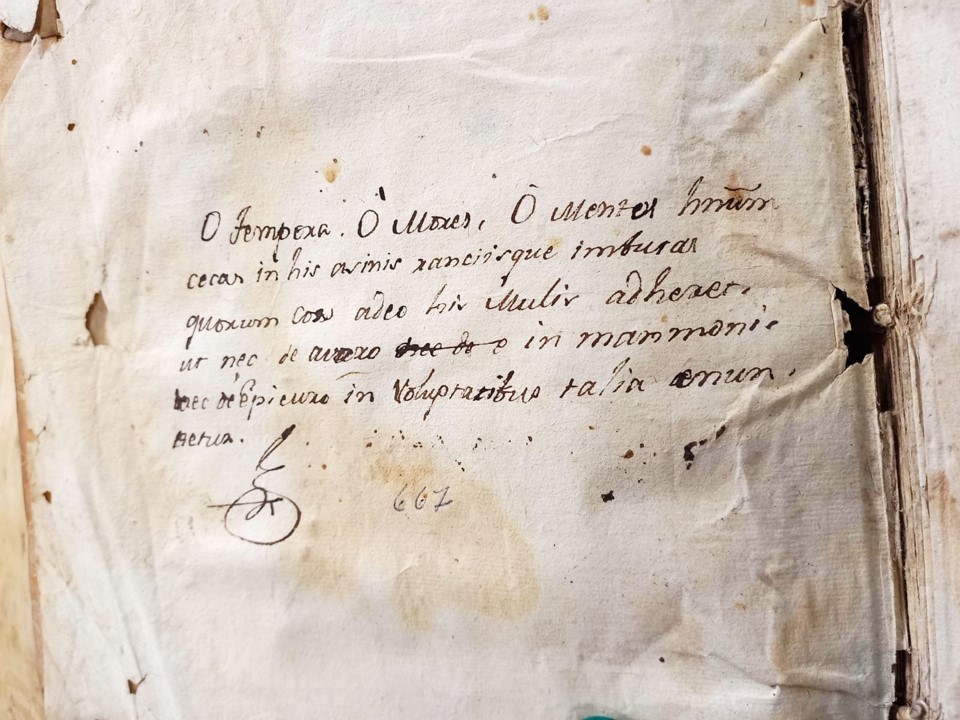 O tempora. O Mores, O Mentes hnūm
cecas in his asinis ranciisque imbutas
quorum cor adeo his Mulis adheret,
ut nec de avaro o in mammonis
nec de Epicuro in Voluptatibus talia enun
netur.
667